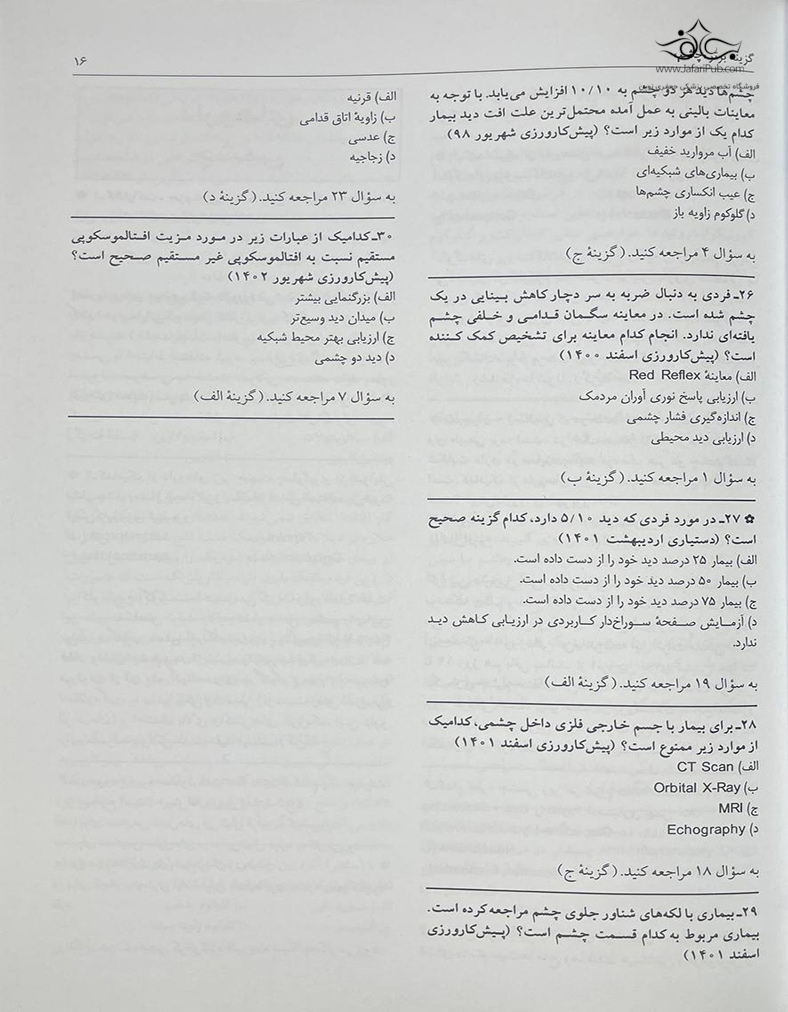 گزینه برتر چشم
۱۶
www.JafariPub.com
فروشگاه تخصصی پزشکی جعفری نوین
چشم‌ها دید هر دو چشم به ۱۰/۱۰ افزایش می‌یابد. با توجه به
معاینات بالینی به عمل آمده محتمل‌ترین علت افت دید بیمار
کدام یک از موارد زیر است؟ (پیش‌کارورزی شهریور ۹۸)
الف) آب مروارید خفیف
ب) بیماری‌های شبکیه‌ای
ج) عیب انکساری چشم‌ها
د) گلوکوم زاویه باز
به سؤال ۴ مراجعه کنید. (گزینهٔ ج)
۲۶ـ فردی به دنبال ضربه به سر دچار کاهش بینایی در یک
چشم شده است. در معاینه سگمان قدامی و خلفی چشم
یافته‌ای ندارد. انجام کدام معاینه برای تشخیص کمک کننده
است؟ (پیش‌کارورزی اسفند ۱۴۰۰)
الف) معاینهٔ Red Reflex
ب) ارزیابی پاسخ نوری آوران مردمک
ج) اندازه‌گیری فشار چشمی
د) ارزیابی دید محیطی
به سؤال ۱ مراجعه کنید. (گزینهٔ ب)
✿ ۲۷ـ در مورد فردی که دید ۵/۱۰ دارد، کدام گزینه صحیح
است؟ (دستیاری اردیبهشت ۱۴۰۱)
الف) بیمار ۲۵ درصد دید خود را از دست داده است.
ب) بیمار ۵۰ درصد دید خود را از دست داده است.
ج) بیمار ۷۵ درصد دید خود را از دست داده است.
د) آزمایش صفحهٔ سوراخ‌دار کاربردی در ارزیابی کاهش دید
ندارد.
به سؤال ۱۹ مراجعه کنید. (گزینهٔ الف)
۲۸ـ برای بیمار با جسم خارجی فلزی داخل چشمی، کدامیک
از موارد زیر ممنوع است؟ (پیش‌کارورزی اسفند ۱۴۰۱)
الف) CT Scan
ب) Orbital X-Ray
ج) MRI
د) Echography
به سؤال ۱۸ مراجعه کنید. (گزینهٔ ج)
۲۹ـ بیماری با لکه‌های شناور جلوی چشم مراجعه کرده است.
بیماری مربوط به کدام قسمت چشم است؟ (پیش‌کارورزی
اسفند ۱۴۰۱)
الف) قرنیه
ب) زاویهٔ اتاق قدامی
ج) عدسی
د) زجاجیه
به سؤال ۲۳ مراجعه کنید. (گزینهٔ د)
۳۰ـ کدامیک از عبارات زیر در مورد مزیت افتالموسکوپی
مستقیم نسبت به افتالموسکوپی غیر مستقیم صحیح است؟
(پیش‌کارورزی شهریور ۱۴۰۲)
الف) بزرگنمایی بیشتر
ب) میدان دید وسیع‌تر
ج) ارزیابی بهتر محیط شبکیه
د) دید دو چشمی
به سؤال ۷ مراجعه کنید. (گزینهٔ الف)